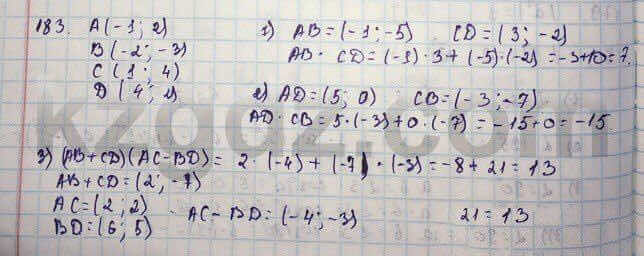 183. A(-1; 2)
B(-2; -3)
C(1; 4)
D(4; 2)
1) AB=(-1; -5) CD=(3; -2)
AB · CD=(-1)·3+(-5)·(-2)=-3+10=7.
2) AD=(5; 0) CB=(-3; -7)
AD·CB=5·(-3)+0·(-7)=-15+0=-15.
3) (AB+CD)(AC-BD)= 2·(-4)+(-7)·(-3)=-8+21=13
AB+CD=(2; -7)
AC=(2; 2) AC-BD=(-4; -3) 21=13
BD=(6; 5)
kzgdz.com